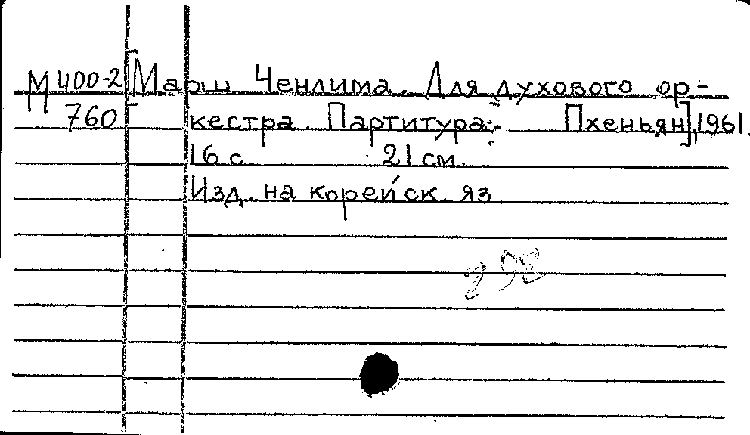 М 400-2 [Марш Ченлима. Для духового ор-
760 кестра Партитура. - Пхеньян], 1961.
16 с. 21 см.
Изд. на корейск. яз